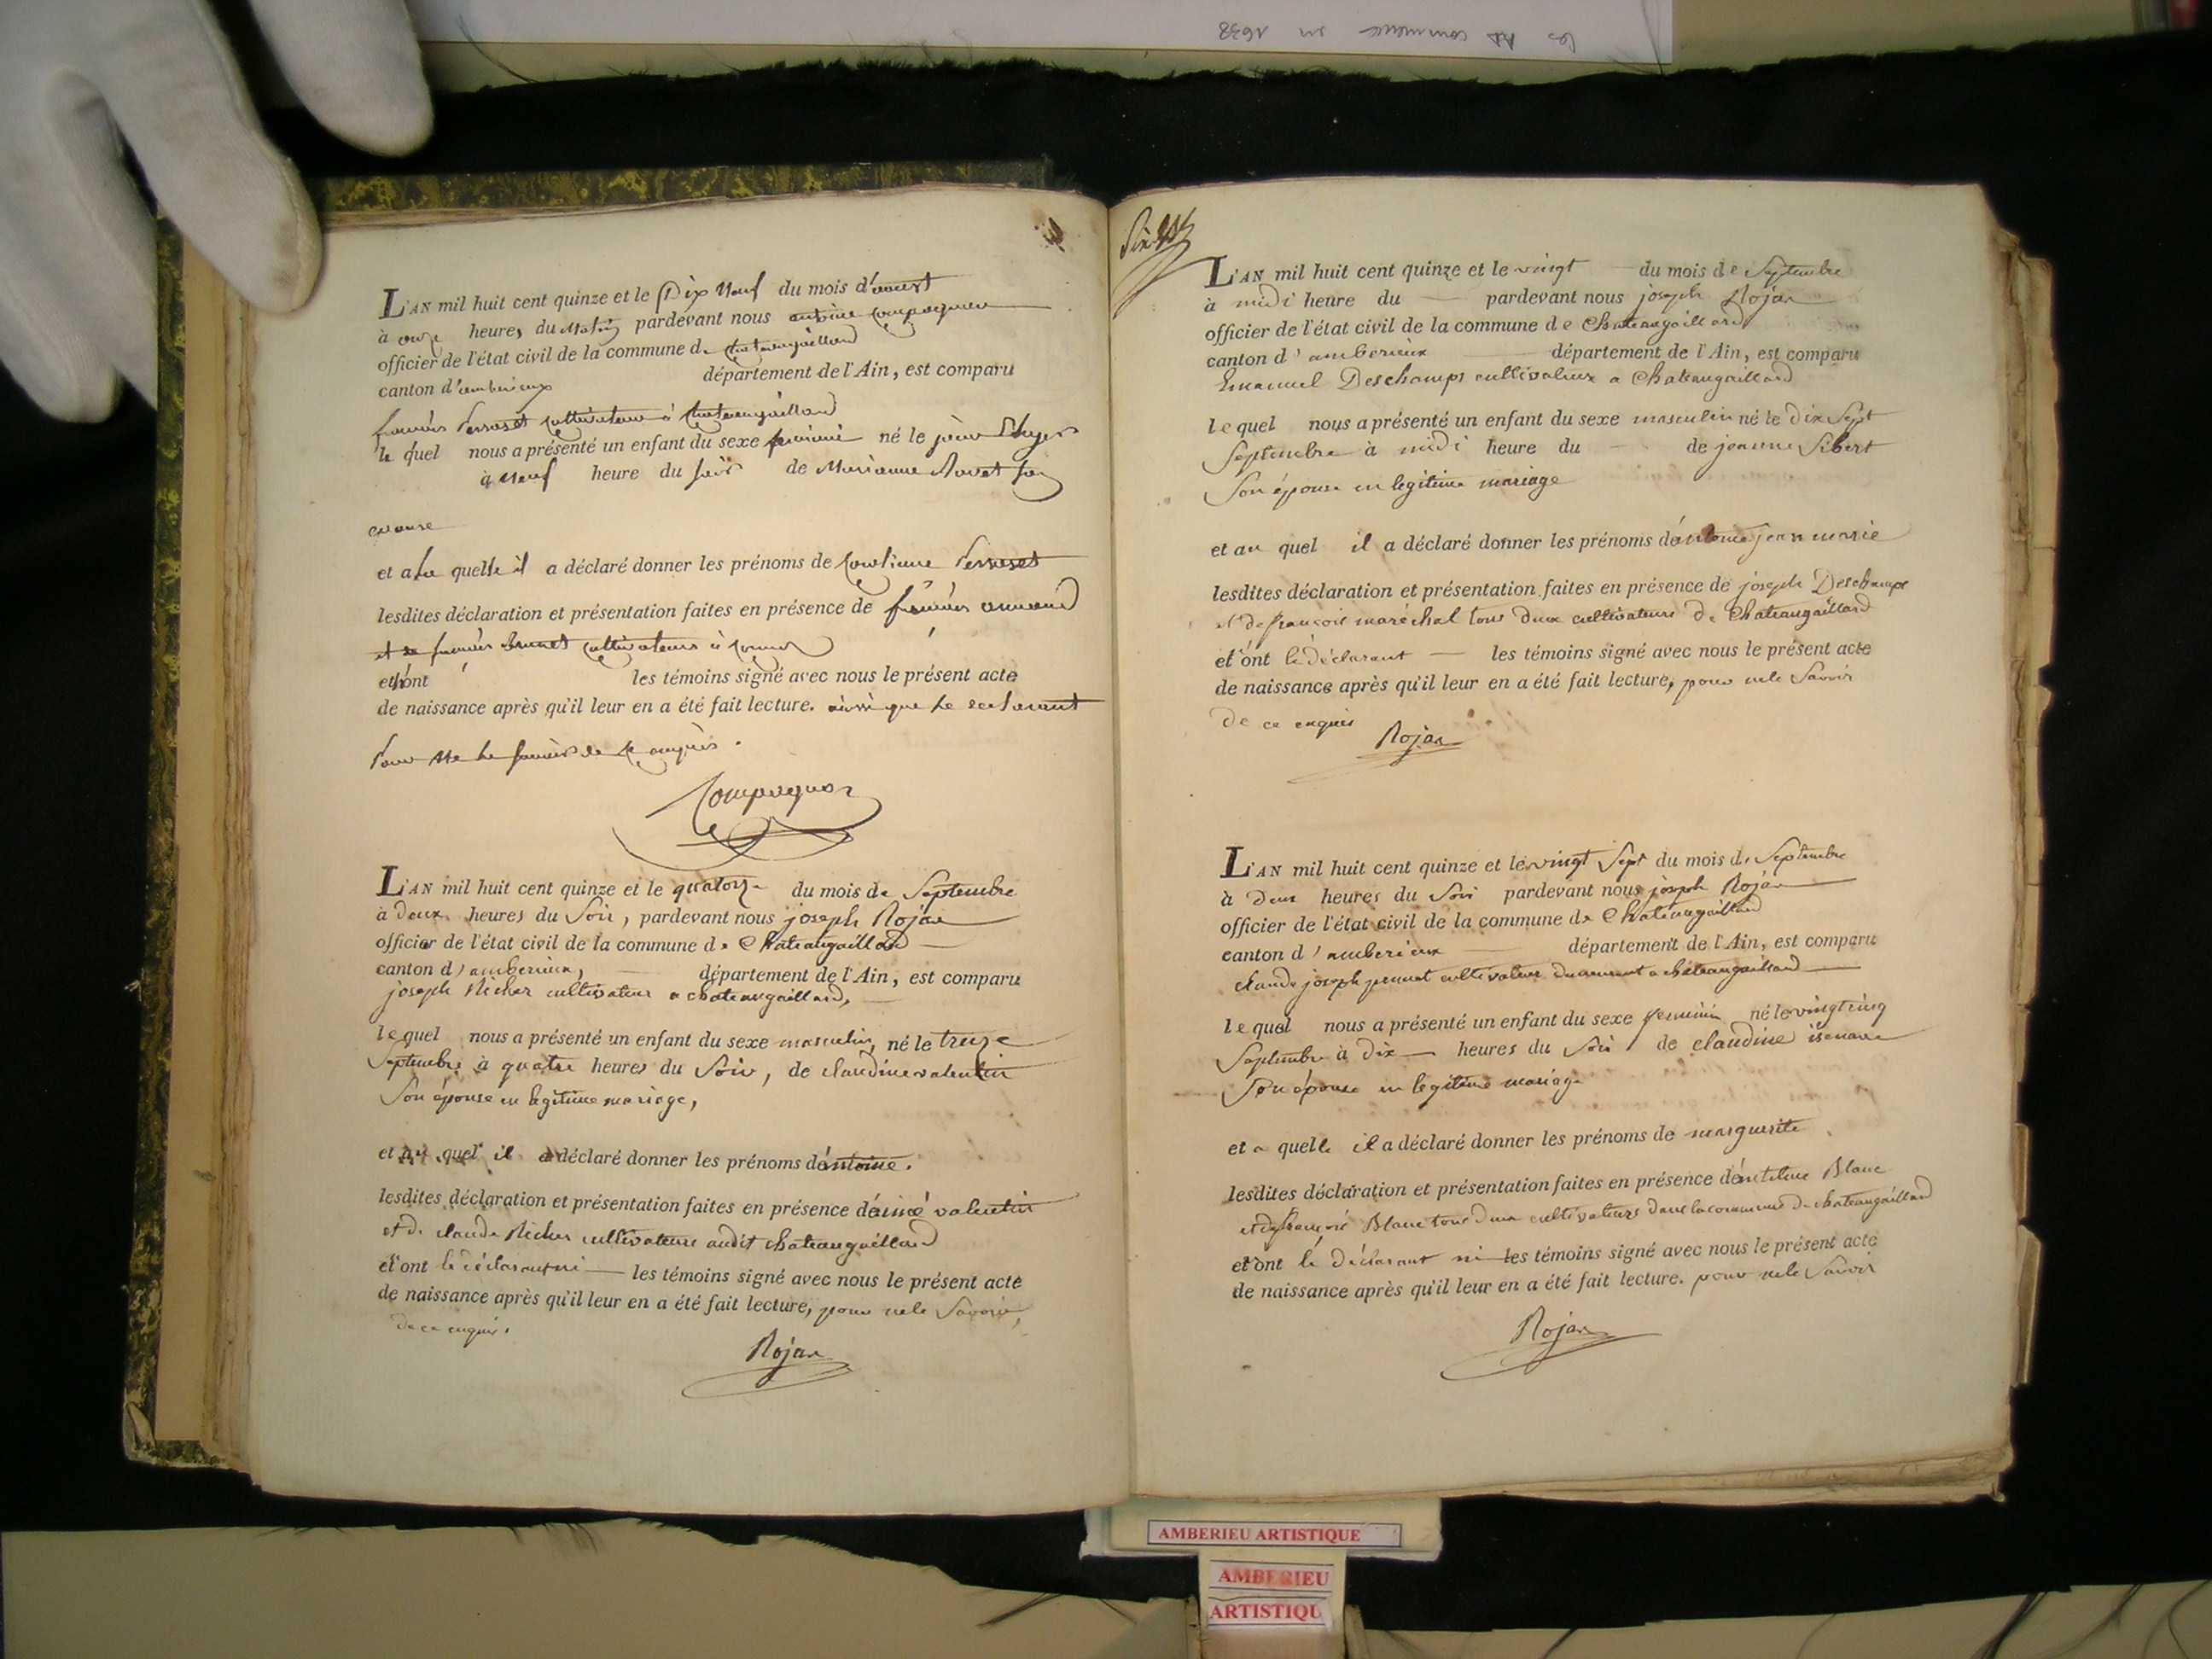 les AD commence en 1638
L'AN mil huit cent quinze et le Dix Neuf du mois d'aoust
à onze heures du Matin pardevant nous antoine Compagnon
officier de l'état civil de la commune de Chateaugaillard
canton d'amberieux département de l'Ain, est comparu
françois Perroset Cultivateur à Chateaugaillard
le quel nous a présenté un enfant du sexe feminin né le jour D'hyer
à Neuf heure du soir de Marianne Rovet son
epouse
et a la quelle il a déclaré donner les prénoms de Perroset
lesdites déclaration et présentation faites en présence de françois
et de françois Brunet Cultivateurs à
et n'ont les témoins signé avec nous le présent acte
de naissance après qu'il leur en a été fait lecture. ainsi que le declarant
Pour Ne le savoir de Ce enquis.
Compagnon
L'AN mil huit cent quinze et le quatorze du mois de Septembre
à deux heures du Soir, pardevant nous joseph Rojan
officier de l'état civil de la commune de Chateaugaillard
canton d'amberieux, département de l'Ain, est comparu
joseph Micher cultivateur a chateaugaillard,
le quel nous a présenté un enfant du sexe masculin, né le treize
Septembre à quatre heures du Soir, de claudine valentin
Son épouse en legitime mariage,
et au quel il a déclaré donner les prénoms d'antoine.
lesdites déclaration et présentation faites en présence d'aimé valentin
et de claude Micher cultivateurs audit chateaugaillard
et ont le déclarant ni les témoins signé avec nous le présent acte
de naissance après qu'il leur en a été fait lecture, pour ne le Savoir,
de ce enquis.
Rojan
L'AN mil huit cent quinze et le vingt du mois de Septembre
à midi heure du pardevant nous joseph Rojan
officier de l'état civil de la commune de Chateaugaillard
canton d'amberieux département de l'Ain, est comparu
Emanuel Deschamps cultivateur a Chateaugaillard
le quel nous a présenté un enfant du sexe masculin né le dix Sept
Septembre à midi heure du de jeanne Sibert
Son épouse en legitime mariage
et au quel il a déclaré donner les prénoms d'antoine jean marie
lesdites déclaration et présentation faites en présence de joseph Deschamps
et de françois maréchal tous deux cultivateurs de Chateaugaillard
et ont le déclarant les témoins signé avec nous le présent acte
de naissance après qu'il leur en a été fait lecture, pour ne le Savoir
de ce enquis
Rojan
L'AN mil huit cent quinze et le vingt Sept du mois de Septembre
à deux heures du Soir pardevant nous joseph Rojan
officier de l'état civil de la commune de Chateaugaillard
canton d'amberieux département de l'Ain, est comparu
claude joseph cultivateur demeurant a chateaugaillard
le quel nous a présenté un enfant du sexe feminin né le vingt cinq
Septembre à dix heures du Soir de claudine
Son épouse en legitime mariage
et a quelle il a déclaré donner les prénoms de marguerite
lesdites déclaration et présentation faites en présence d' Blanc
et de françois Blanc tous deux cultivateurs dans la commune de chateaugaillard
et ont le déclarant ni les témoins signé avec nous le présent acte
de naissance après qu'il leur en a été fait lecture. pour ne le Savoir
Rojan
AMBERIEU ARTISTIQUE
AMBERIEU
ARTISTIQU